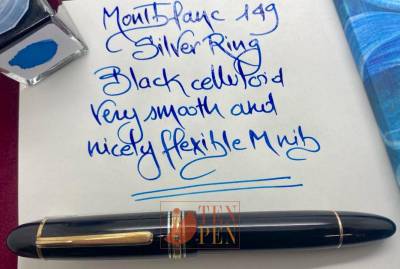 Montblanc 149
Silver Ring
Black celluloid
very smooth and
nicely flexible M nib
TEN
PEN